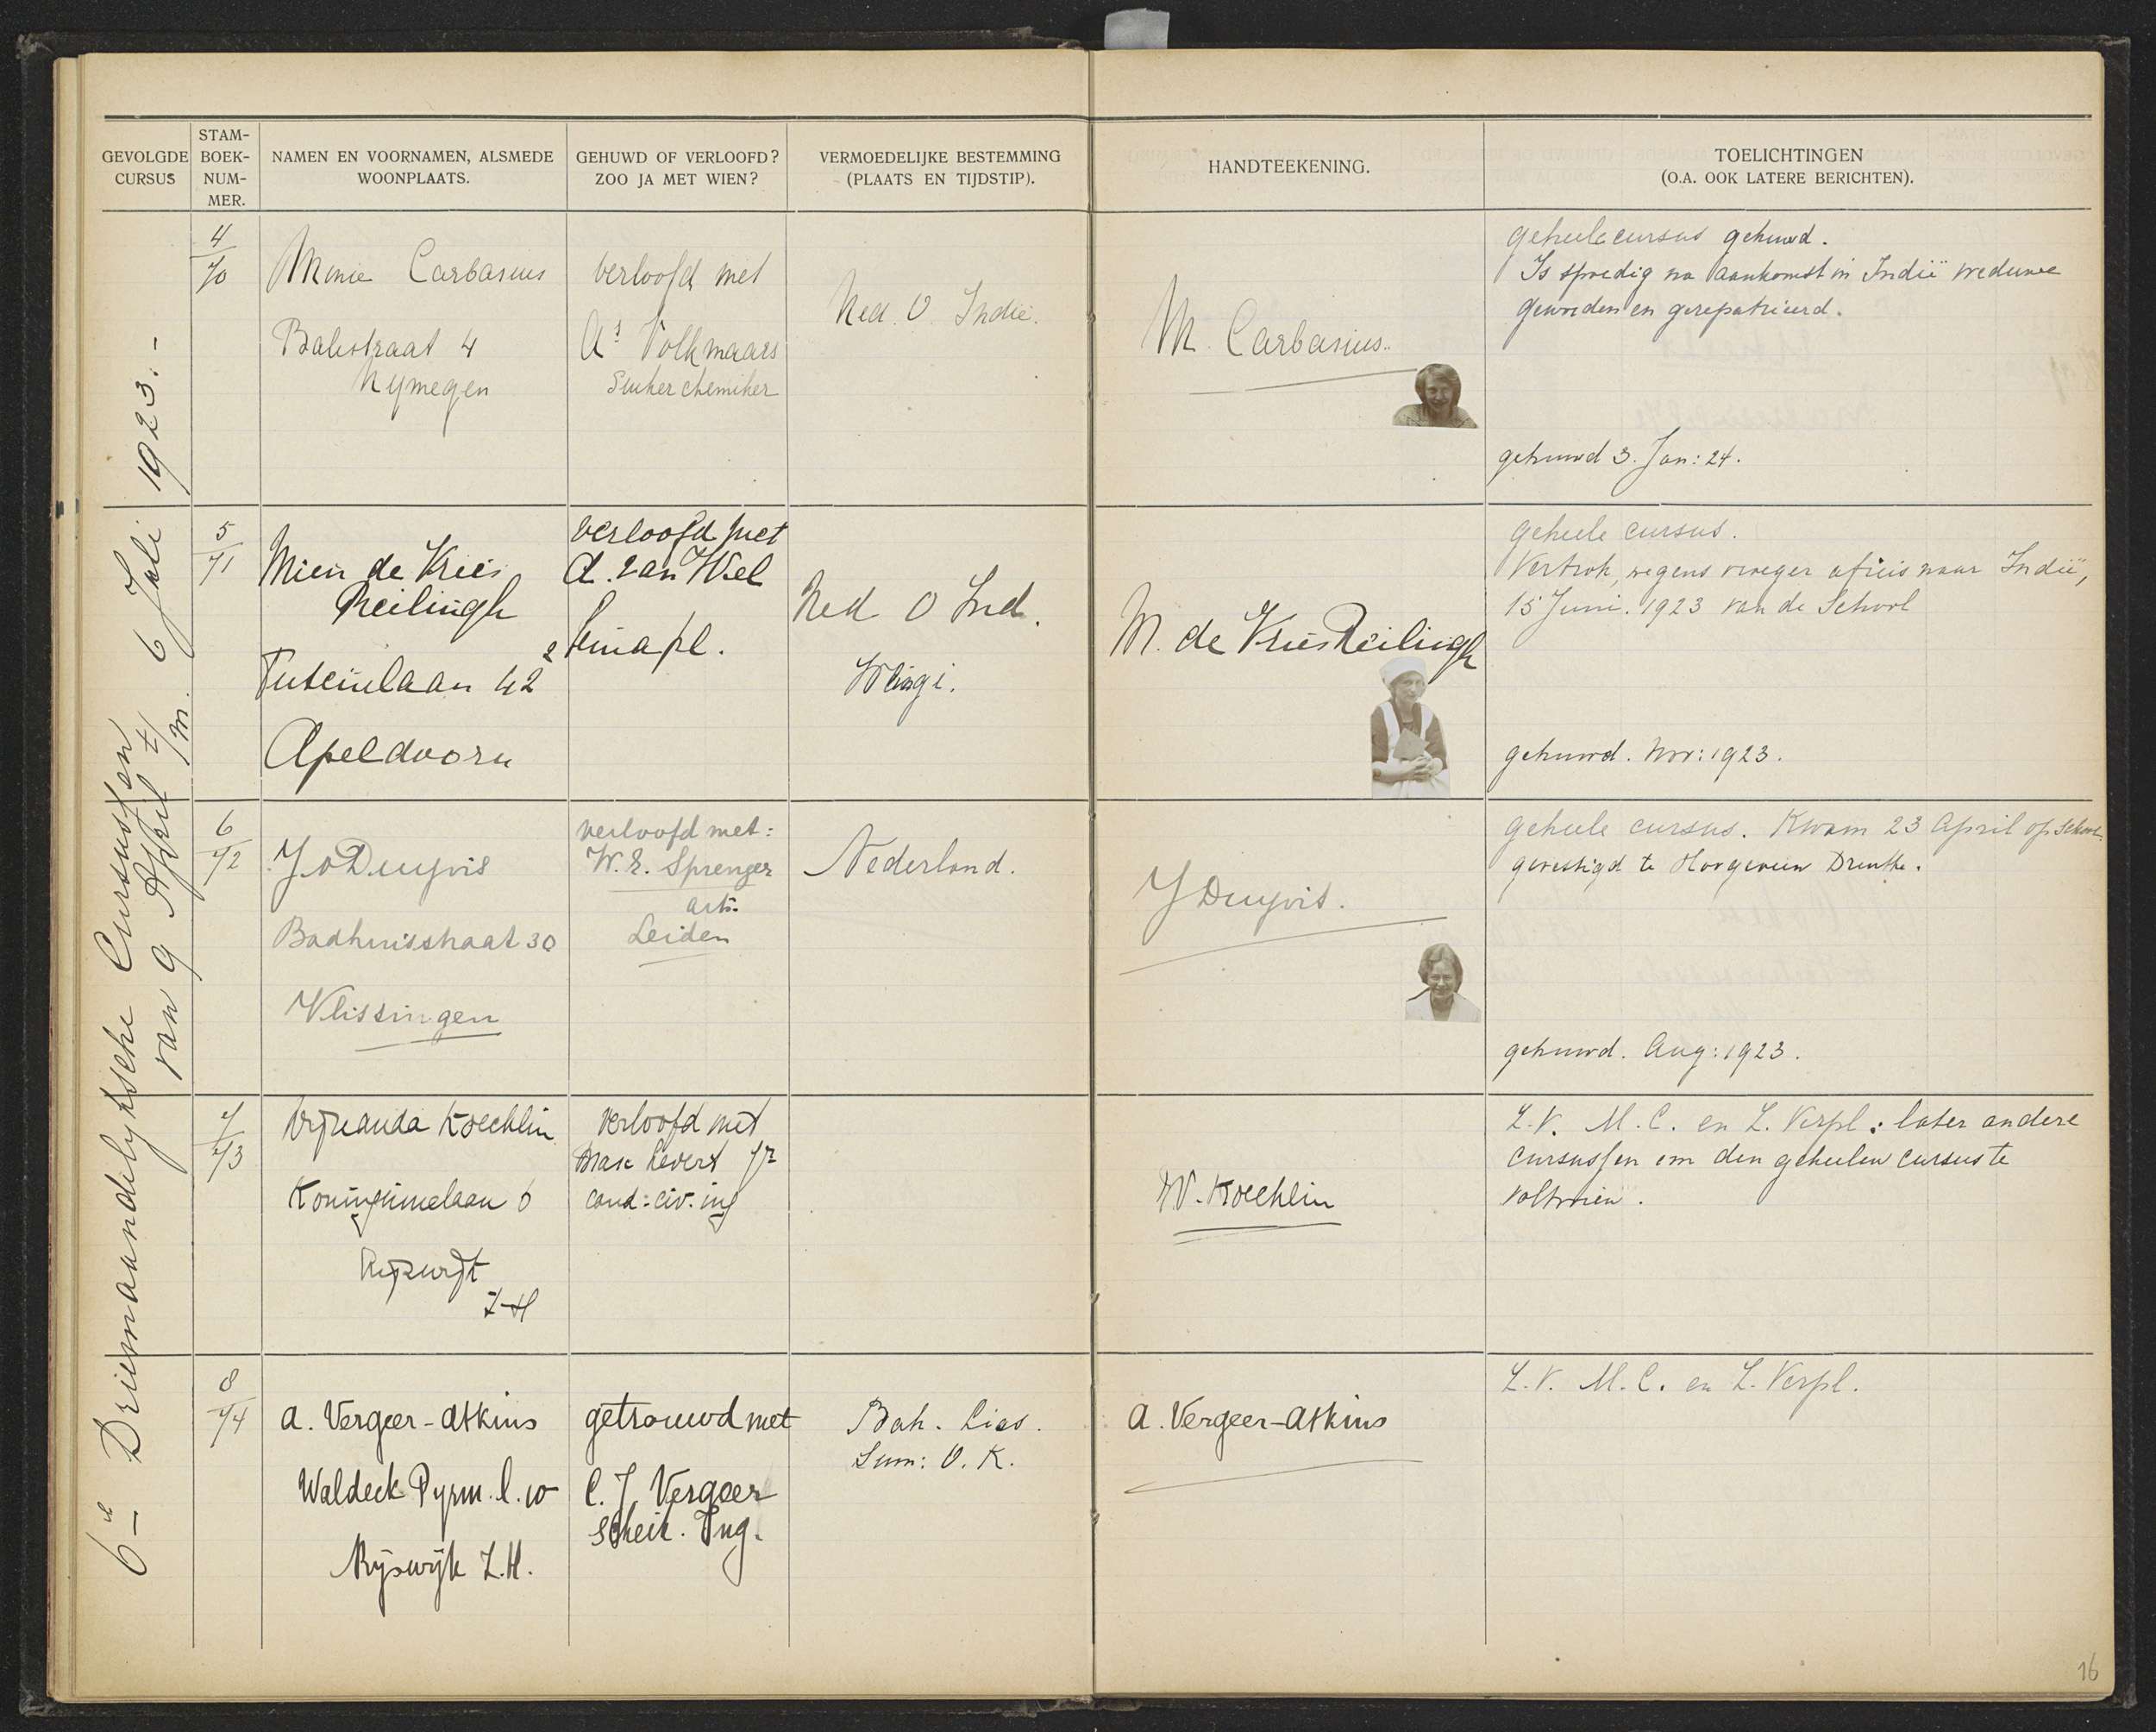 GEVOLGDE CURSUS
STAM-BOEK-NUM-MER.
NAMEN EN VOORNAMEN, ALSMEDE WOONPLAATS.
GEHUWD OF VERLOOFD? ZOO JA MET WIEN?
VERMOEDELIJKE BESTEMMING (PLAATS EN TIJDSTIP).
HANDTEEKENING.
TOELICHTINGEN (O.A. OOK LATERE BERICHTEN).
6e Driemaandelyksche Cursussen
van 9 April t/m. 6 Juli 1923.-
4/70
Minie Carbasius
Balistraat 4
Nymegen
verloofd met
As Volkmaars
Suiker chemiker
Ned. O. Indië.
M. Carbasius.
geheele cursus gehuwd.
Is spoedig na aankomst in Indië weduwe
geworden en gerepatrieerd.
gehuwd 3. Jan: 24.
5/71
Mien de Vries
Reilingh
Tuteinlaan 42
Apeldoorn
verloofd met
A. van Wiel
Ned O Ind.
Wlingi.
M. de Vries Reilingh
geheele cursus.
Vertrok, wegens vroeger afreis naar Indië,
15 Juni. 1923 van de School
gehuwd. Nov: 1923.
6/72
Jo Duyvis
Badhuisstraat 30
Vlissingen
verloofd met:
W. E. Sprenger
arts.
Leiden
Nederland.
J Duyvis.
geheele cursus. Kwam 23 April op School
gevestigd te Hoogeveen Drenthe.
gehuwd. Aug: 1923.
7/73
Wijnanda Koechlin
Koninginnelaan 6
Rijswijk
Z-H
verloofd met
Max Levert Jr
cand: civ. ing
W. Koechlin
Z. V. M. C. en Z. Verpl: later andere
cursussen om den geheelen cursus te
voltooien.
8/74
A. Vergeer-Atkins
Waldeck Pyrm. l. 10
Rijswijk Z.H.
getrouwd met
C. J. Vergeer
Scheik. Ing.
Bah. Lias.
Sum: O. K.
A. Vergeer-Atkins
Z. V. M. C. en Z. Verpl.
16